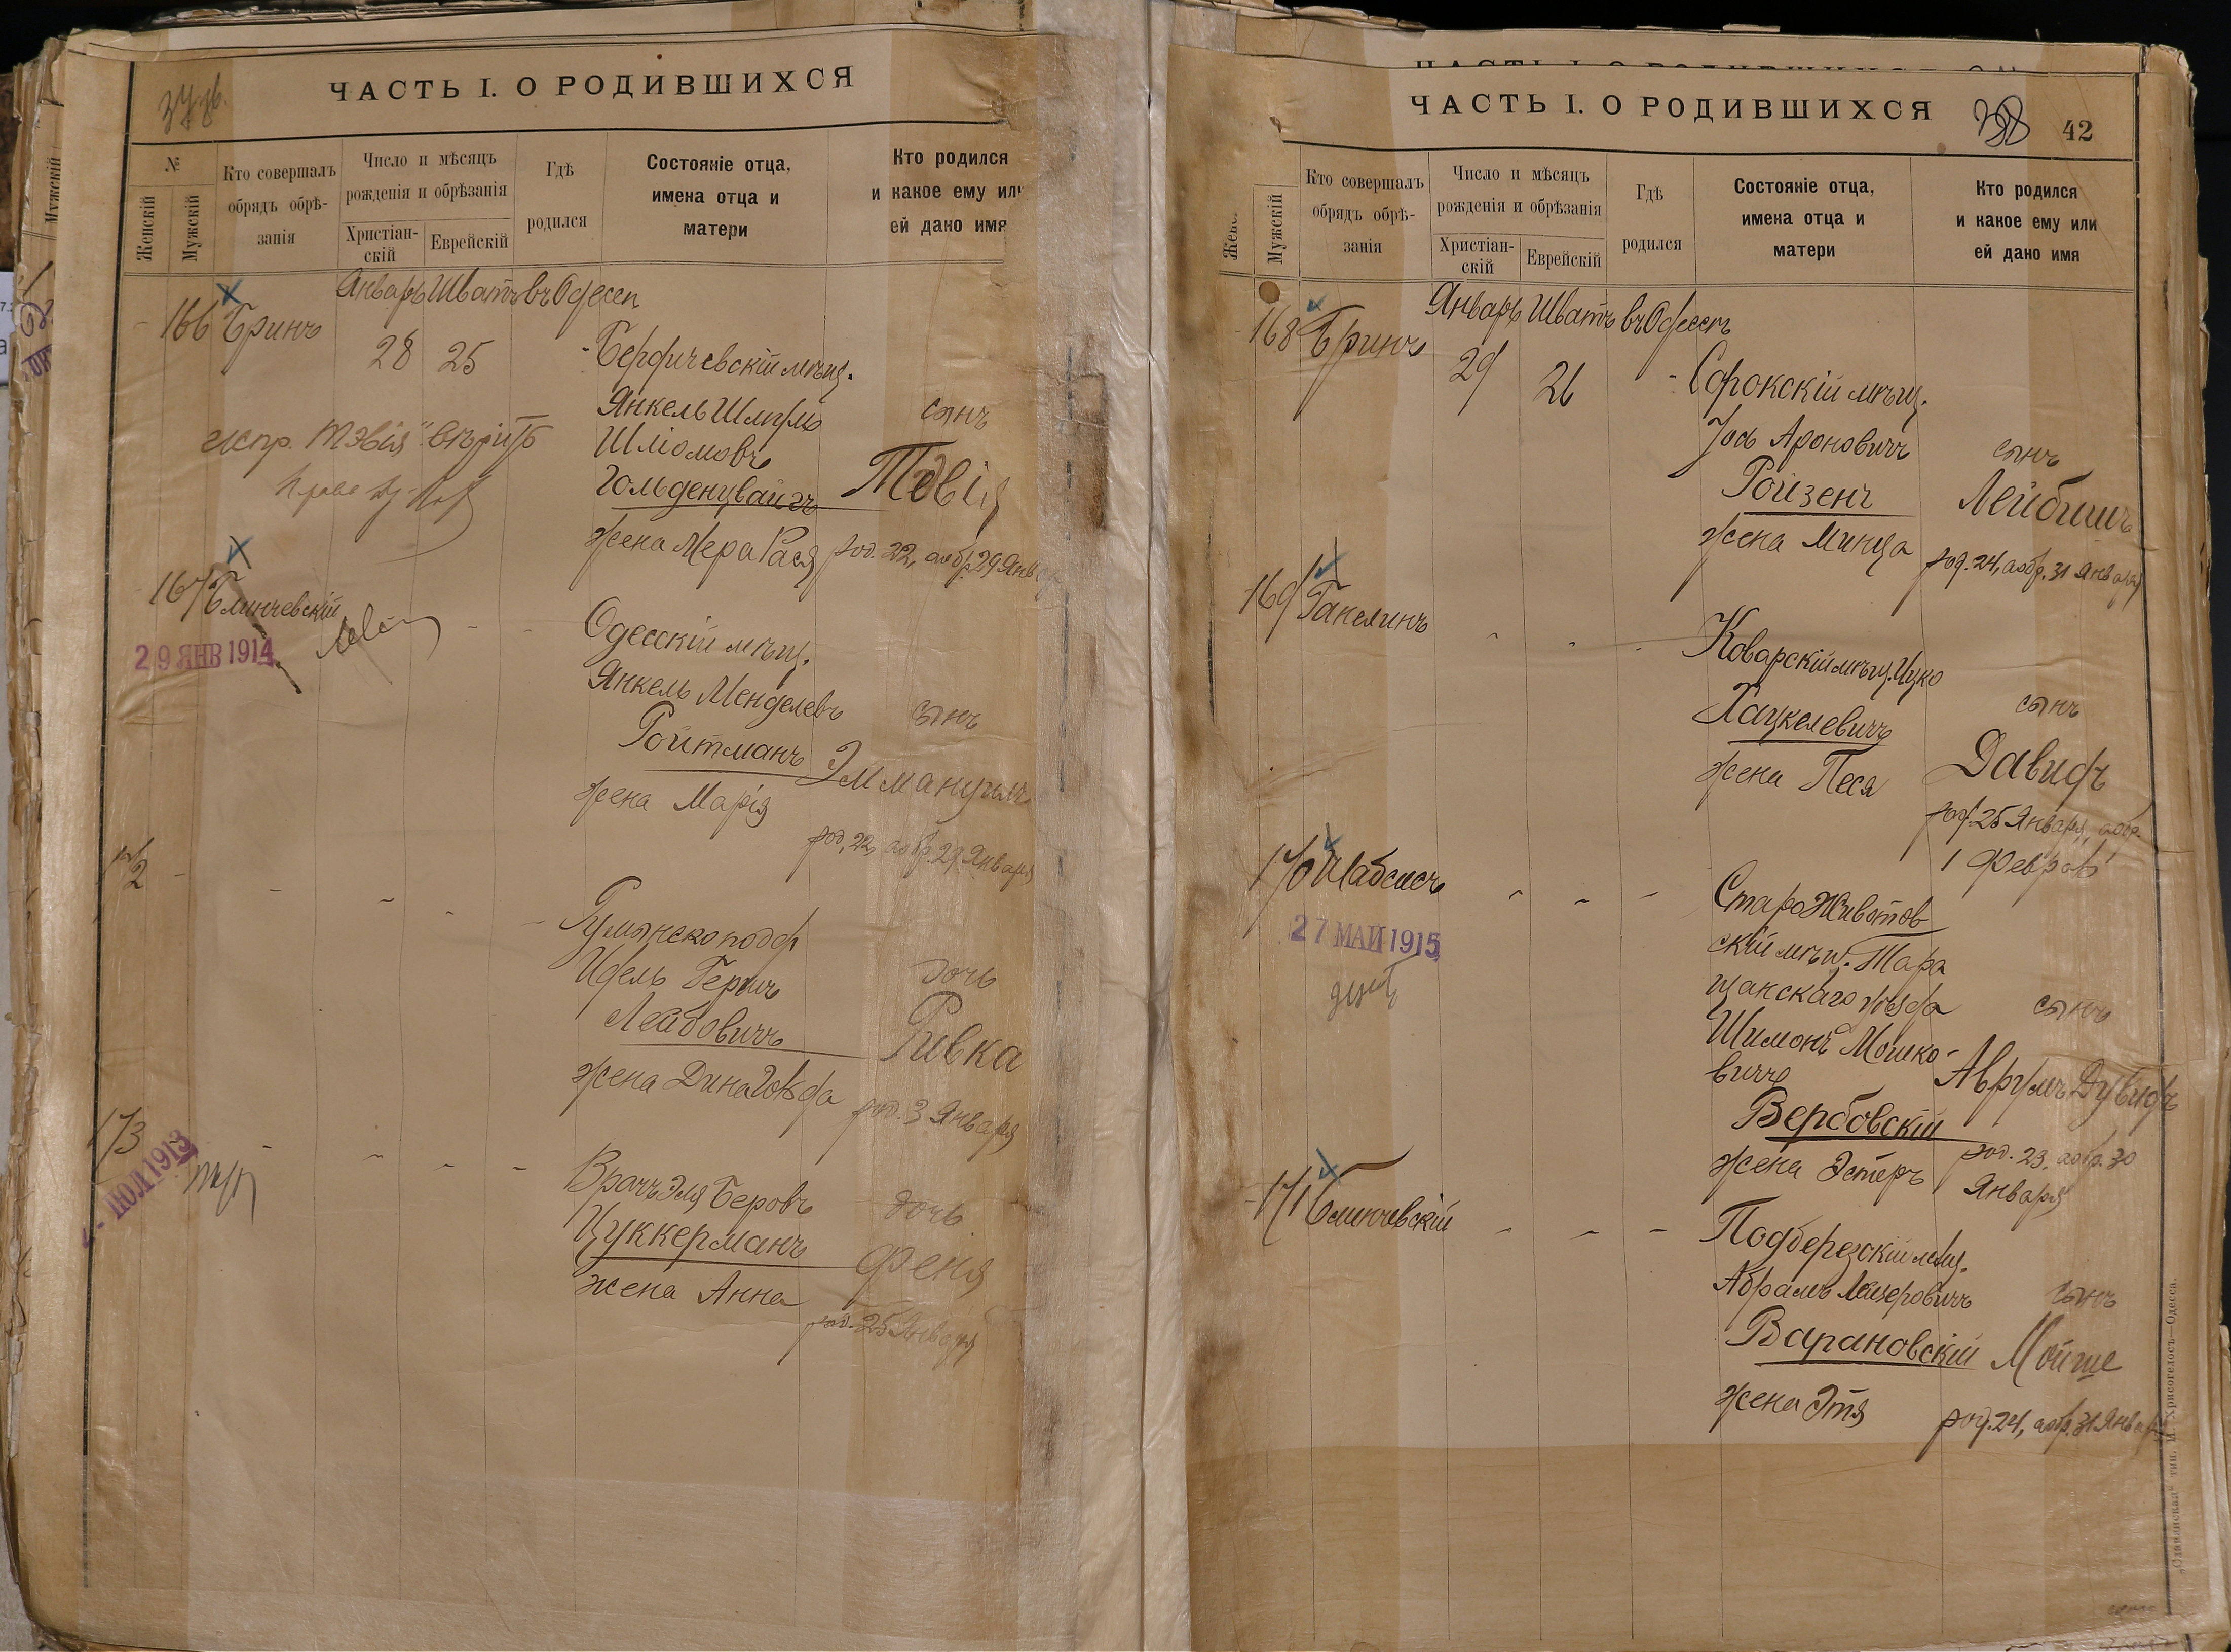 ЧАСТЬ I. О РОДИВШИХСЯ
№
Женскій
Мужскій
Кто совершалъ
обрядъ обрѣ-
занія
Число и мѣсяцъ
рожденія и обрѣзанія
Христіан-
скій
Еврейскій
Гдѣ
родился
Состояніе отца,
имена отца и
матери
Кто родился
и какое ему или
ей дано имя
Январь Шватъ въ Одессѣ
166 Бринъ
28 25
Бердичевскій мѣщ.
Янкель Шмуль
Шліомовъ
Гольденцвайгъ
жена Мера Рася
сынъ
Тевія
род. 22, а обр. 29 Янв
испр. Тэвія вѣрить
167 Блинчевскій
29 ЯНВ 1914
Одесскій мѣщ.
Янкель Менделевъ
Ройтманъ
жена Марія
сынъ
Эммануилъ
род. 22, а обр. 29 Января
172
Румынско подд
Идель Бер
Лейбовичъ
жена Дина Говда
дочь
Ривка
род. 3 Января
173
ІЮЛ 1913
Врачъ Эля Беровъ
Цуккерманъ
жена Анна
дочь
Феня
род. 25 Января
ЧАСТЬ I. О РОДИВШИХСЯ
42
Мужскій
Кто совершалъ
обрядъ обрѣ-
занія
Число и мѣсяцъ
рожденія и обрѣзанія
Христіан-
скій
Еврейскій
Гдѣ
родился
Состояніе отца,
имена отца и
матери
Кто родился
и какое ему или
ей дано имя
Январь Шватъ въ Одессѣ
168 Бринъ
29 26
Сорокскій мѣщ.
Іось Ароновичъ
Ройзенъ
жена Минца
сынъ
Лейбишъ
род. 24, а обр. 31 Января
169 Ганелинъ
Коварскій мѣщ. Ицко
Хацкелевичъ
жена Песя
сынъ
Давидъ
род. 25 Января, а обр.
1 Февраля
170 Шабсисъ
27 МАЙ 1915
Старо Животов
скій мѣщ. Тара
щанскаго уѣзда
Шимонъ Мошко-
вичъ
Вербовскій
жена Эстеръ
сынъ
Аврумъ Дувидъ
род. 23, а обр. 30
Января
171 Блинчевскій
Подберезскій мѣщ.
Абрамъ Лейзеровичъ
Барановскій
жена Этя
сынъ
Мойше
род. 24, а обр. 31 Январ
„Славянская“ тип. Н. Хрисогелосъ—Одесса.